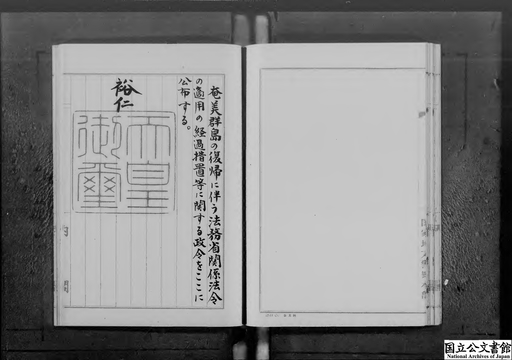 奄美群島の復帰に伴う法務省関係法令
の適用の経過措置等に関する政令をここに
公布する。
裕仁
天皇
御璽
国立公文書館
National Archives of Japan